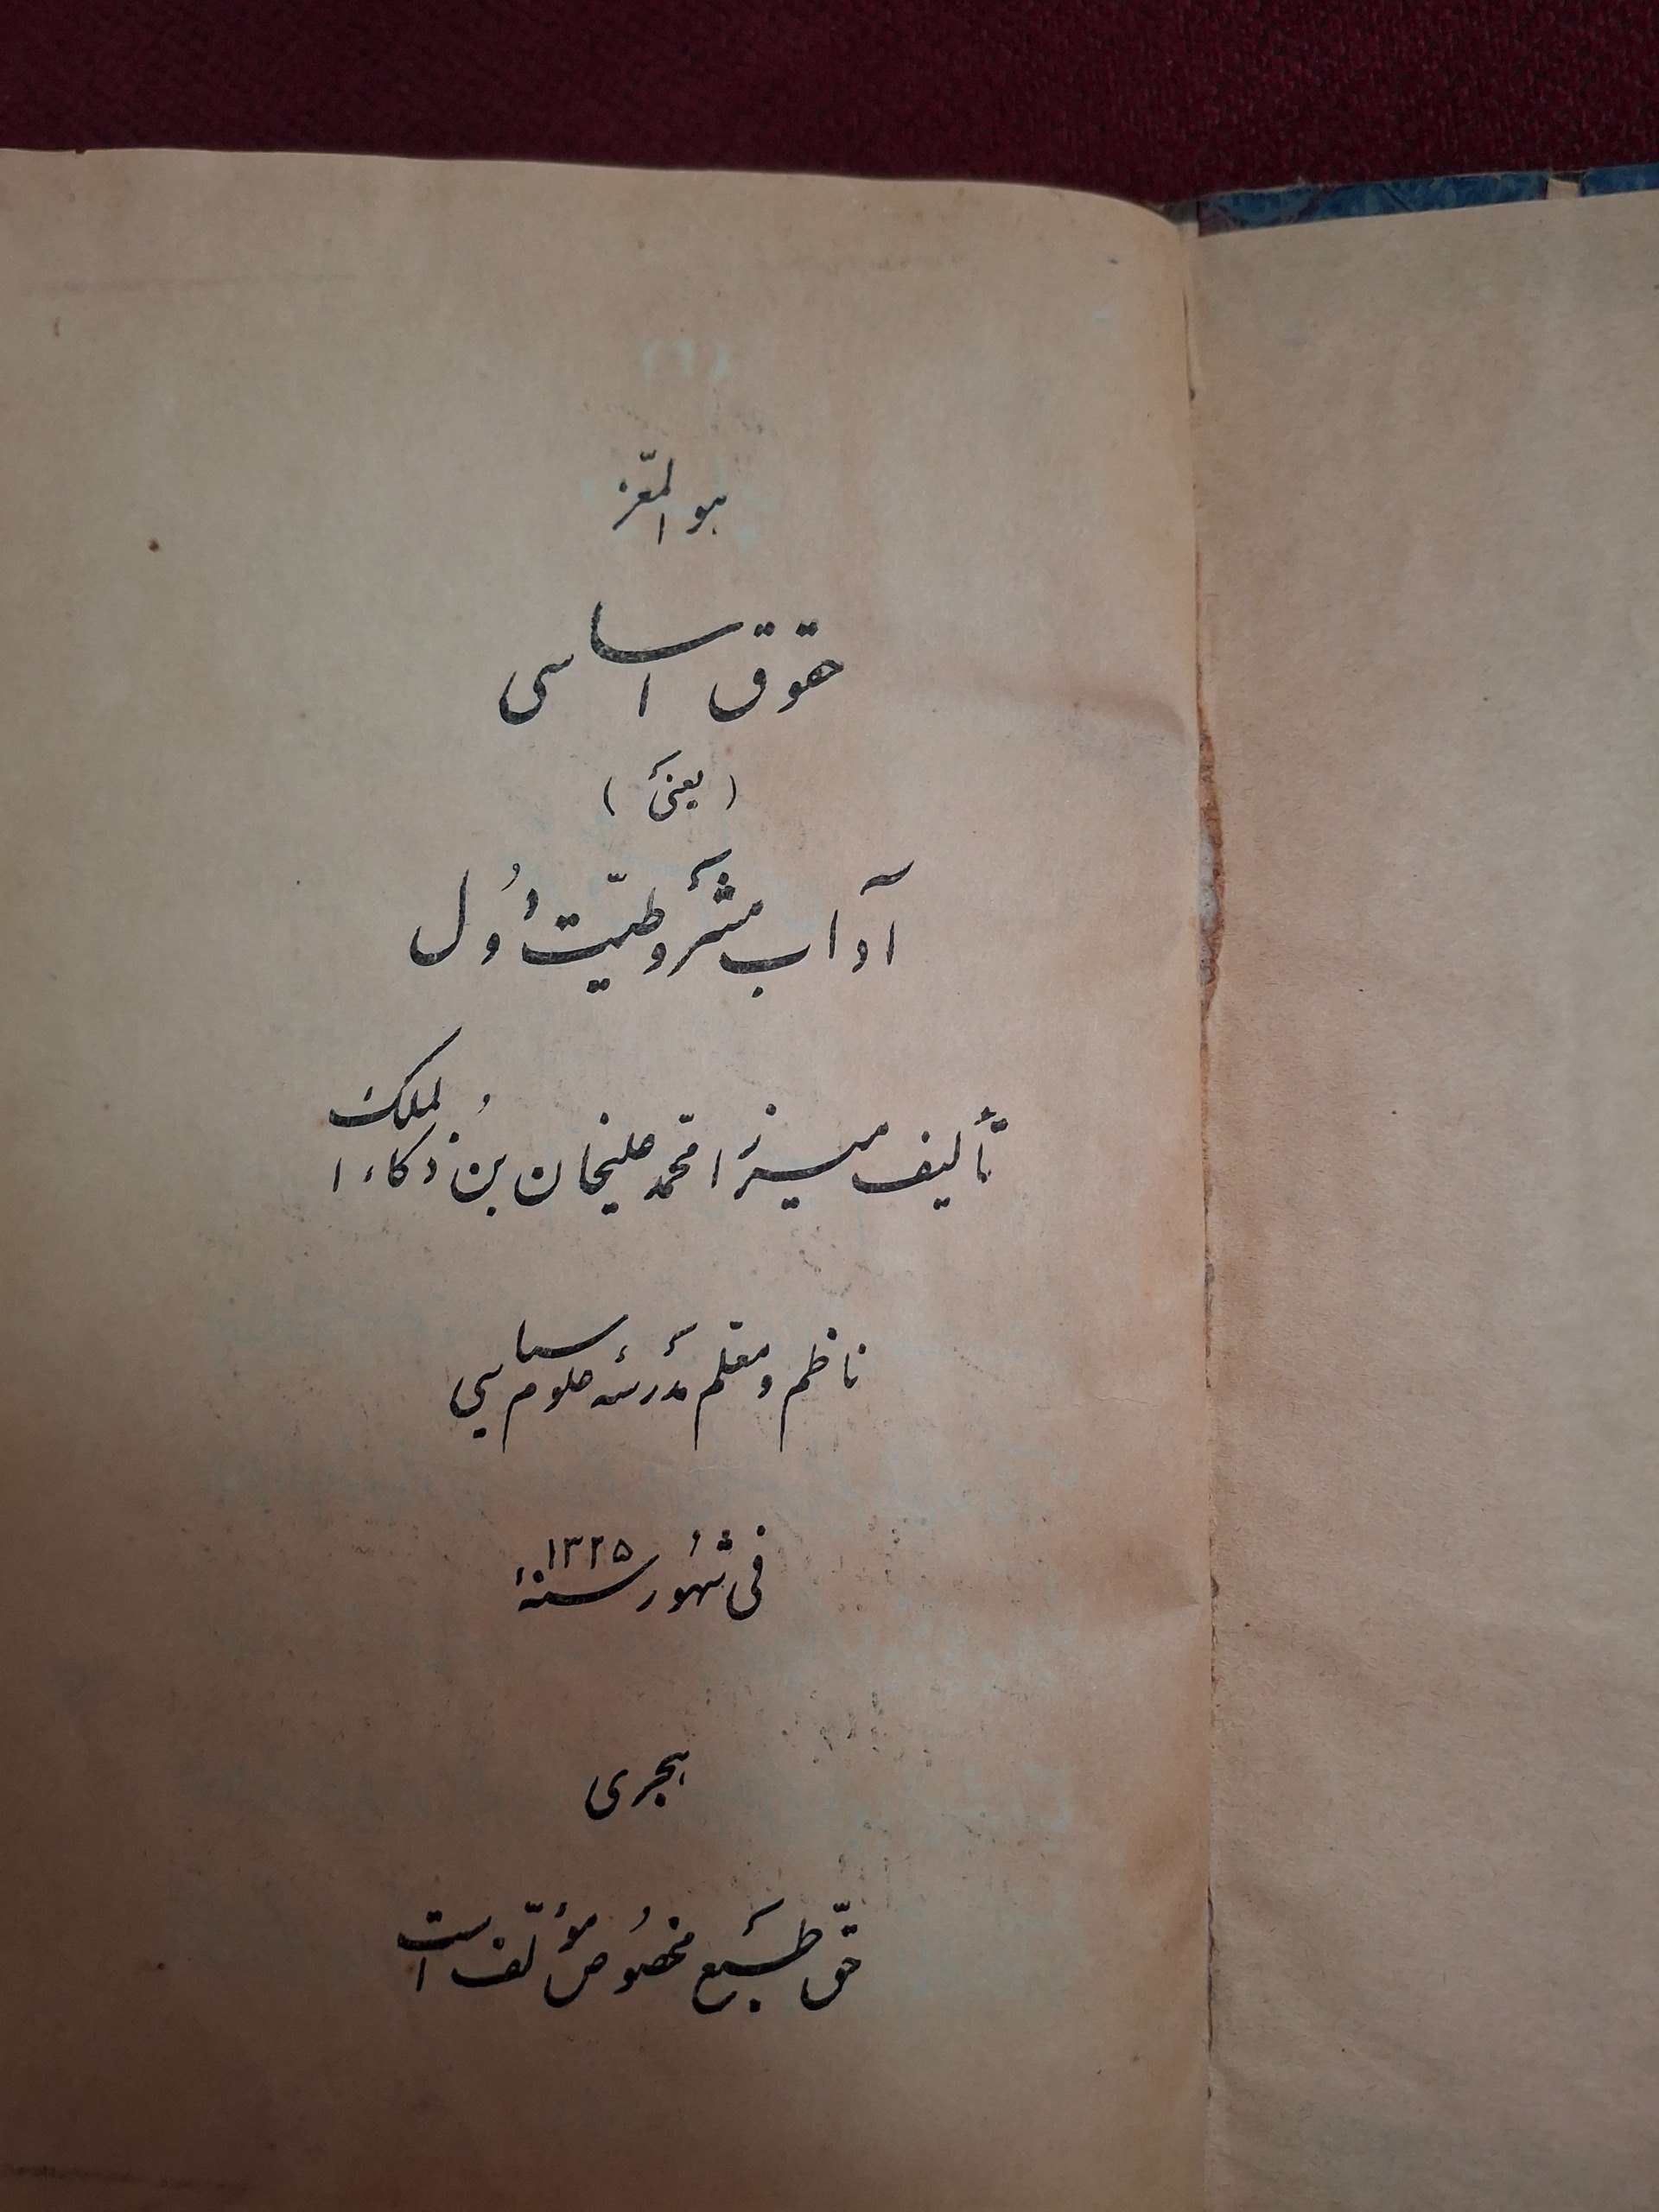 هوالمعزّ
حقوق اساسی
(یعنی)
آداب مشروطیّت دُوَل
تألیف میرزا محمّد علیخان بن ذُکاءالملک
ناظم و معلّم مدرسهٔ علوم سیاسی
فی شهور سنهٔ ۱۳۲۵
هجری
حقّ طبع مخصُوص مؤلّف است